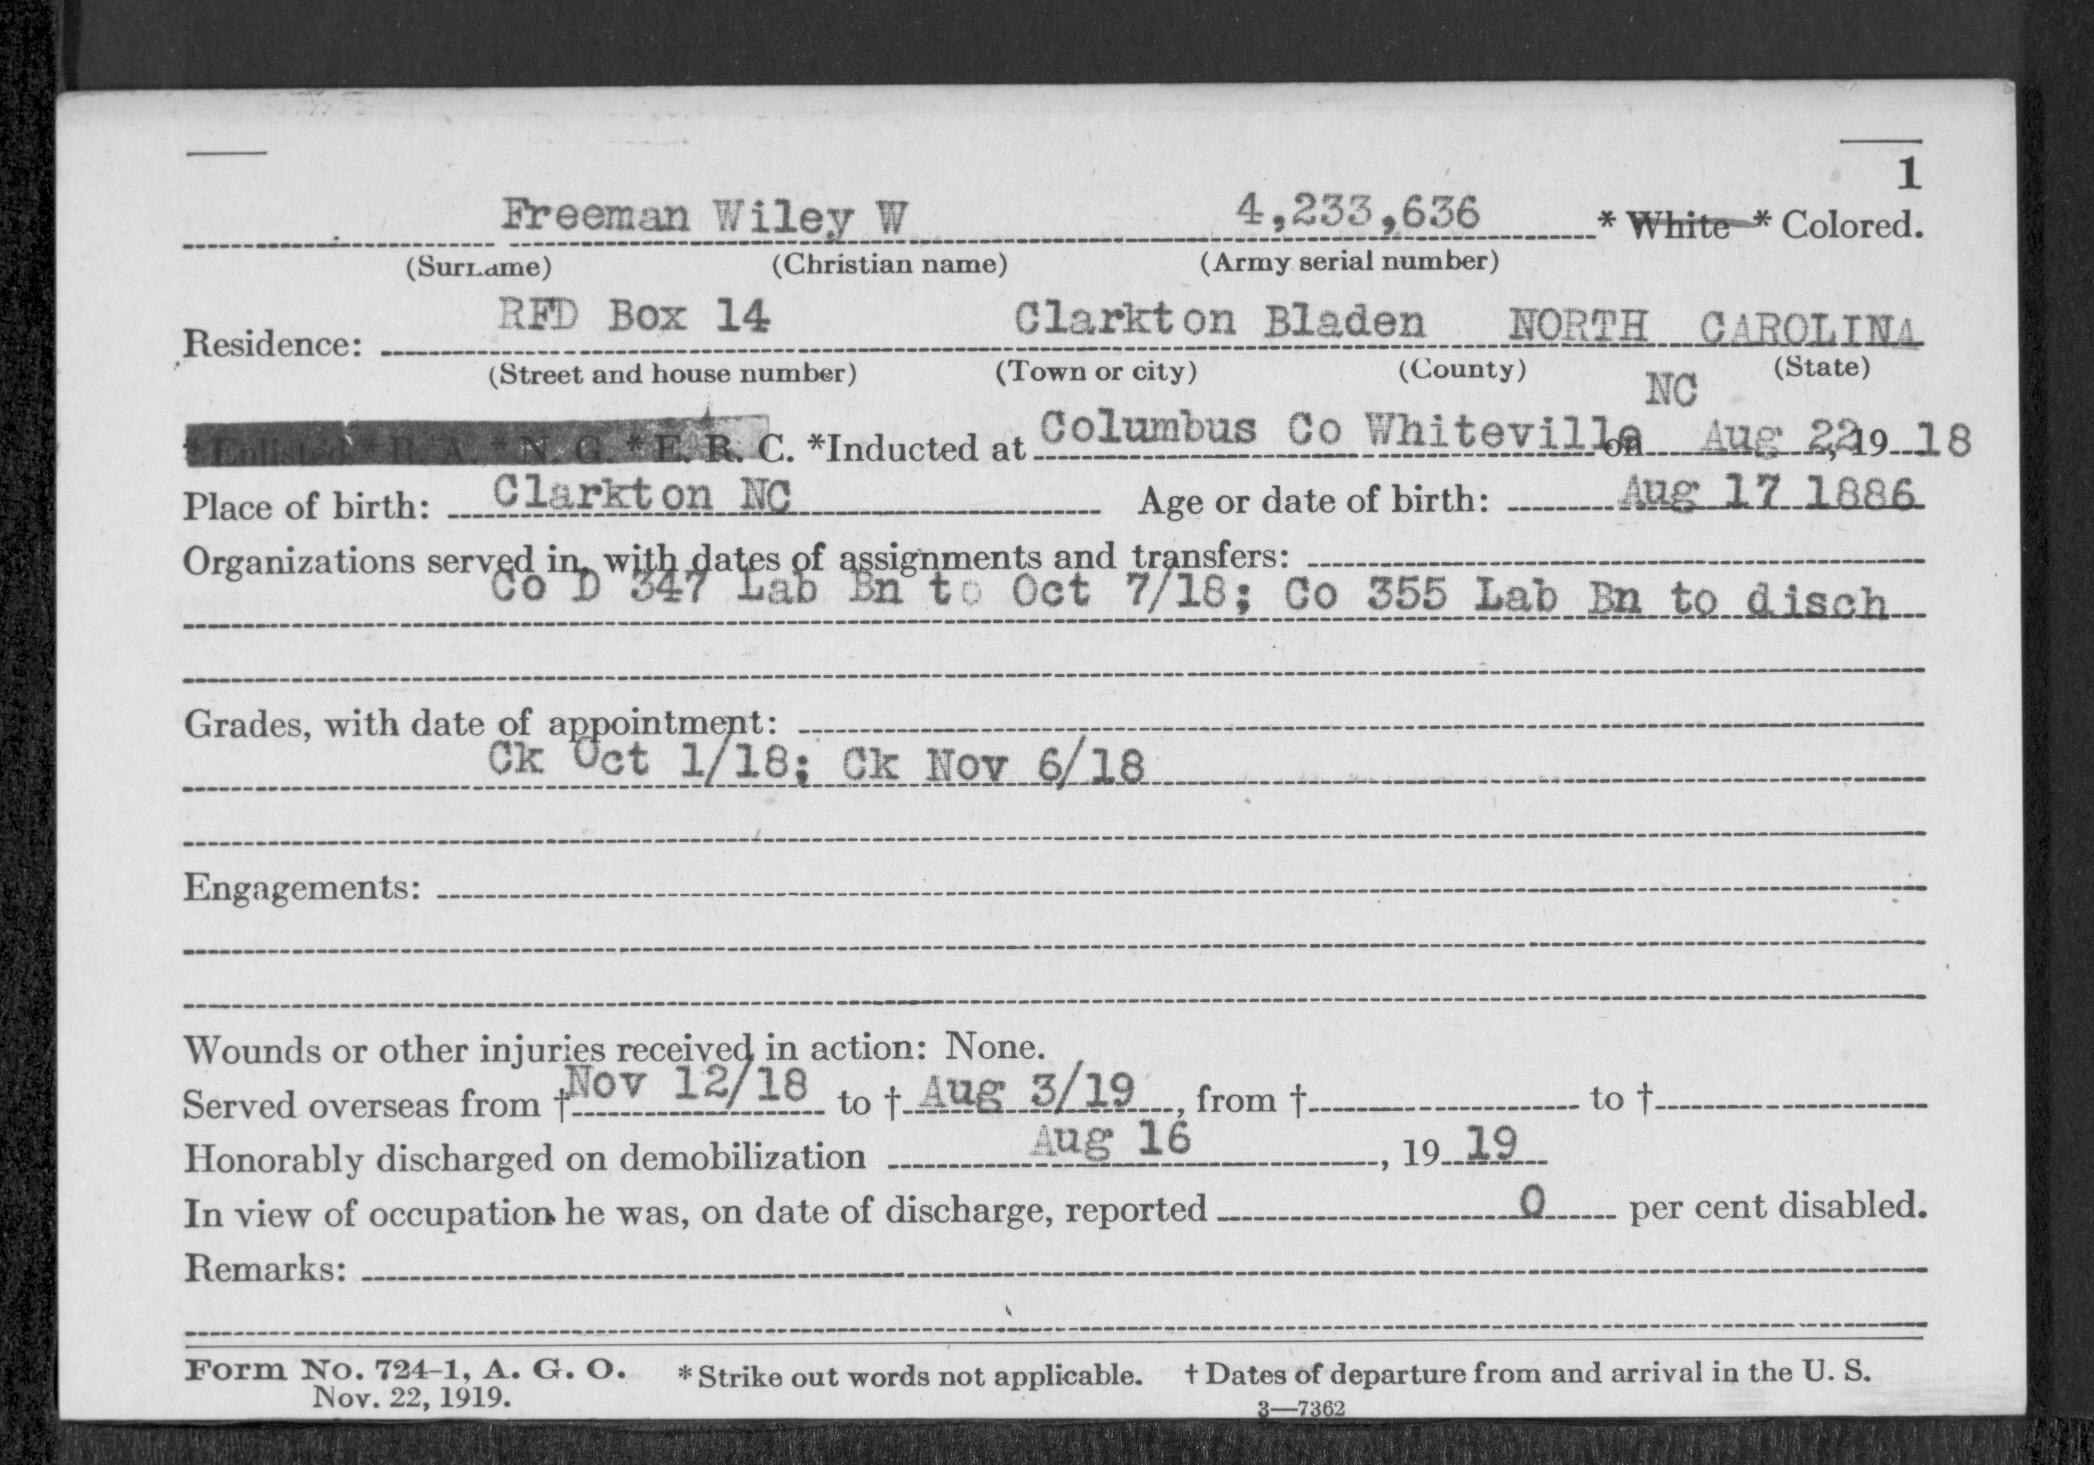 1
Freeman Wiley W 4,233,636 * White * Colored.
(Surname) (Christian name) (Army serial number)
Residence: RFD Box 14 Clarkton Bladen NORTH CAROLINA
(Street and house number) (Town or city) (County) (State)
NC
* Enlisted * R. A. * N. G. * E. R. C. *Inducted at Columbus Co Whiteville on Aug 22, 19 18
Place of birth: Clarkton NC Age or date of birth: Aug 17 1886
Organizations served in, with dates of assignments and transfers:
Co D 347 Lab Bn to Oct 7/18; Co 355 Lab Bn to disch
Grades, with date of appointment:
Ck Oct 1/18; Ck Nov 6/18
Engagements:
Wounds or other injuries received in action: None.
Served overseas from † Nov 12/18 to † Aug 3/19, from † to †
Honorably discharged on demobilization Aug 16, 19 19
In view of occupation he was, on date of discharge, reported 0 per cent disabled.
Remarks:
Form No. 724-1, A. G. O. * Strike out words not applicable. † Dates of departure from and arrival in the U. S.
Nov. 22, 1919.
3—7362